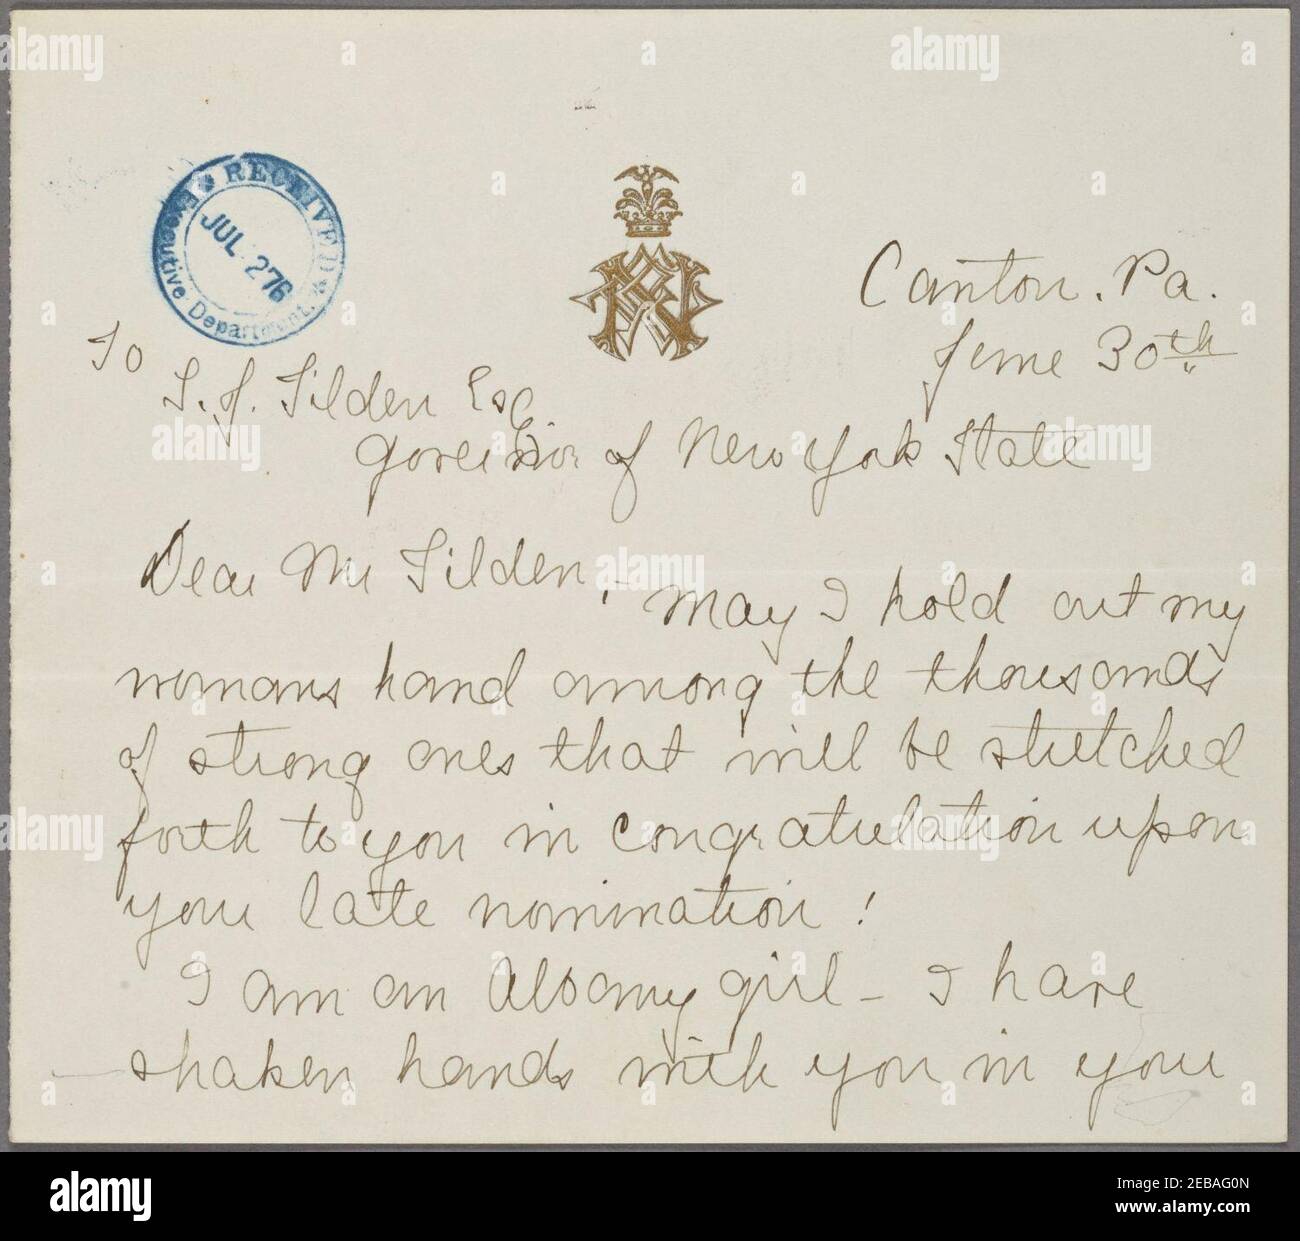 RECEIVED
Executive Department.
JUL 2 76
Canton. Pa.
June 30th
To
S. J. Tilden Esq
Governor of New York State
Dear Mr Tilden,
May I hold out my
womans hand among the thousands
of strong ones that will be stretched
forth to you in congratulation upon
your late nomination!
I am an Albany girl - I have
shaken hands with you in your
alamy
Image ID: 2EBAG0N
www.alamy.com